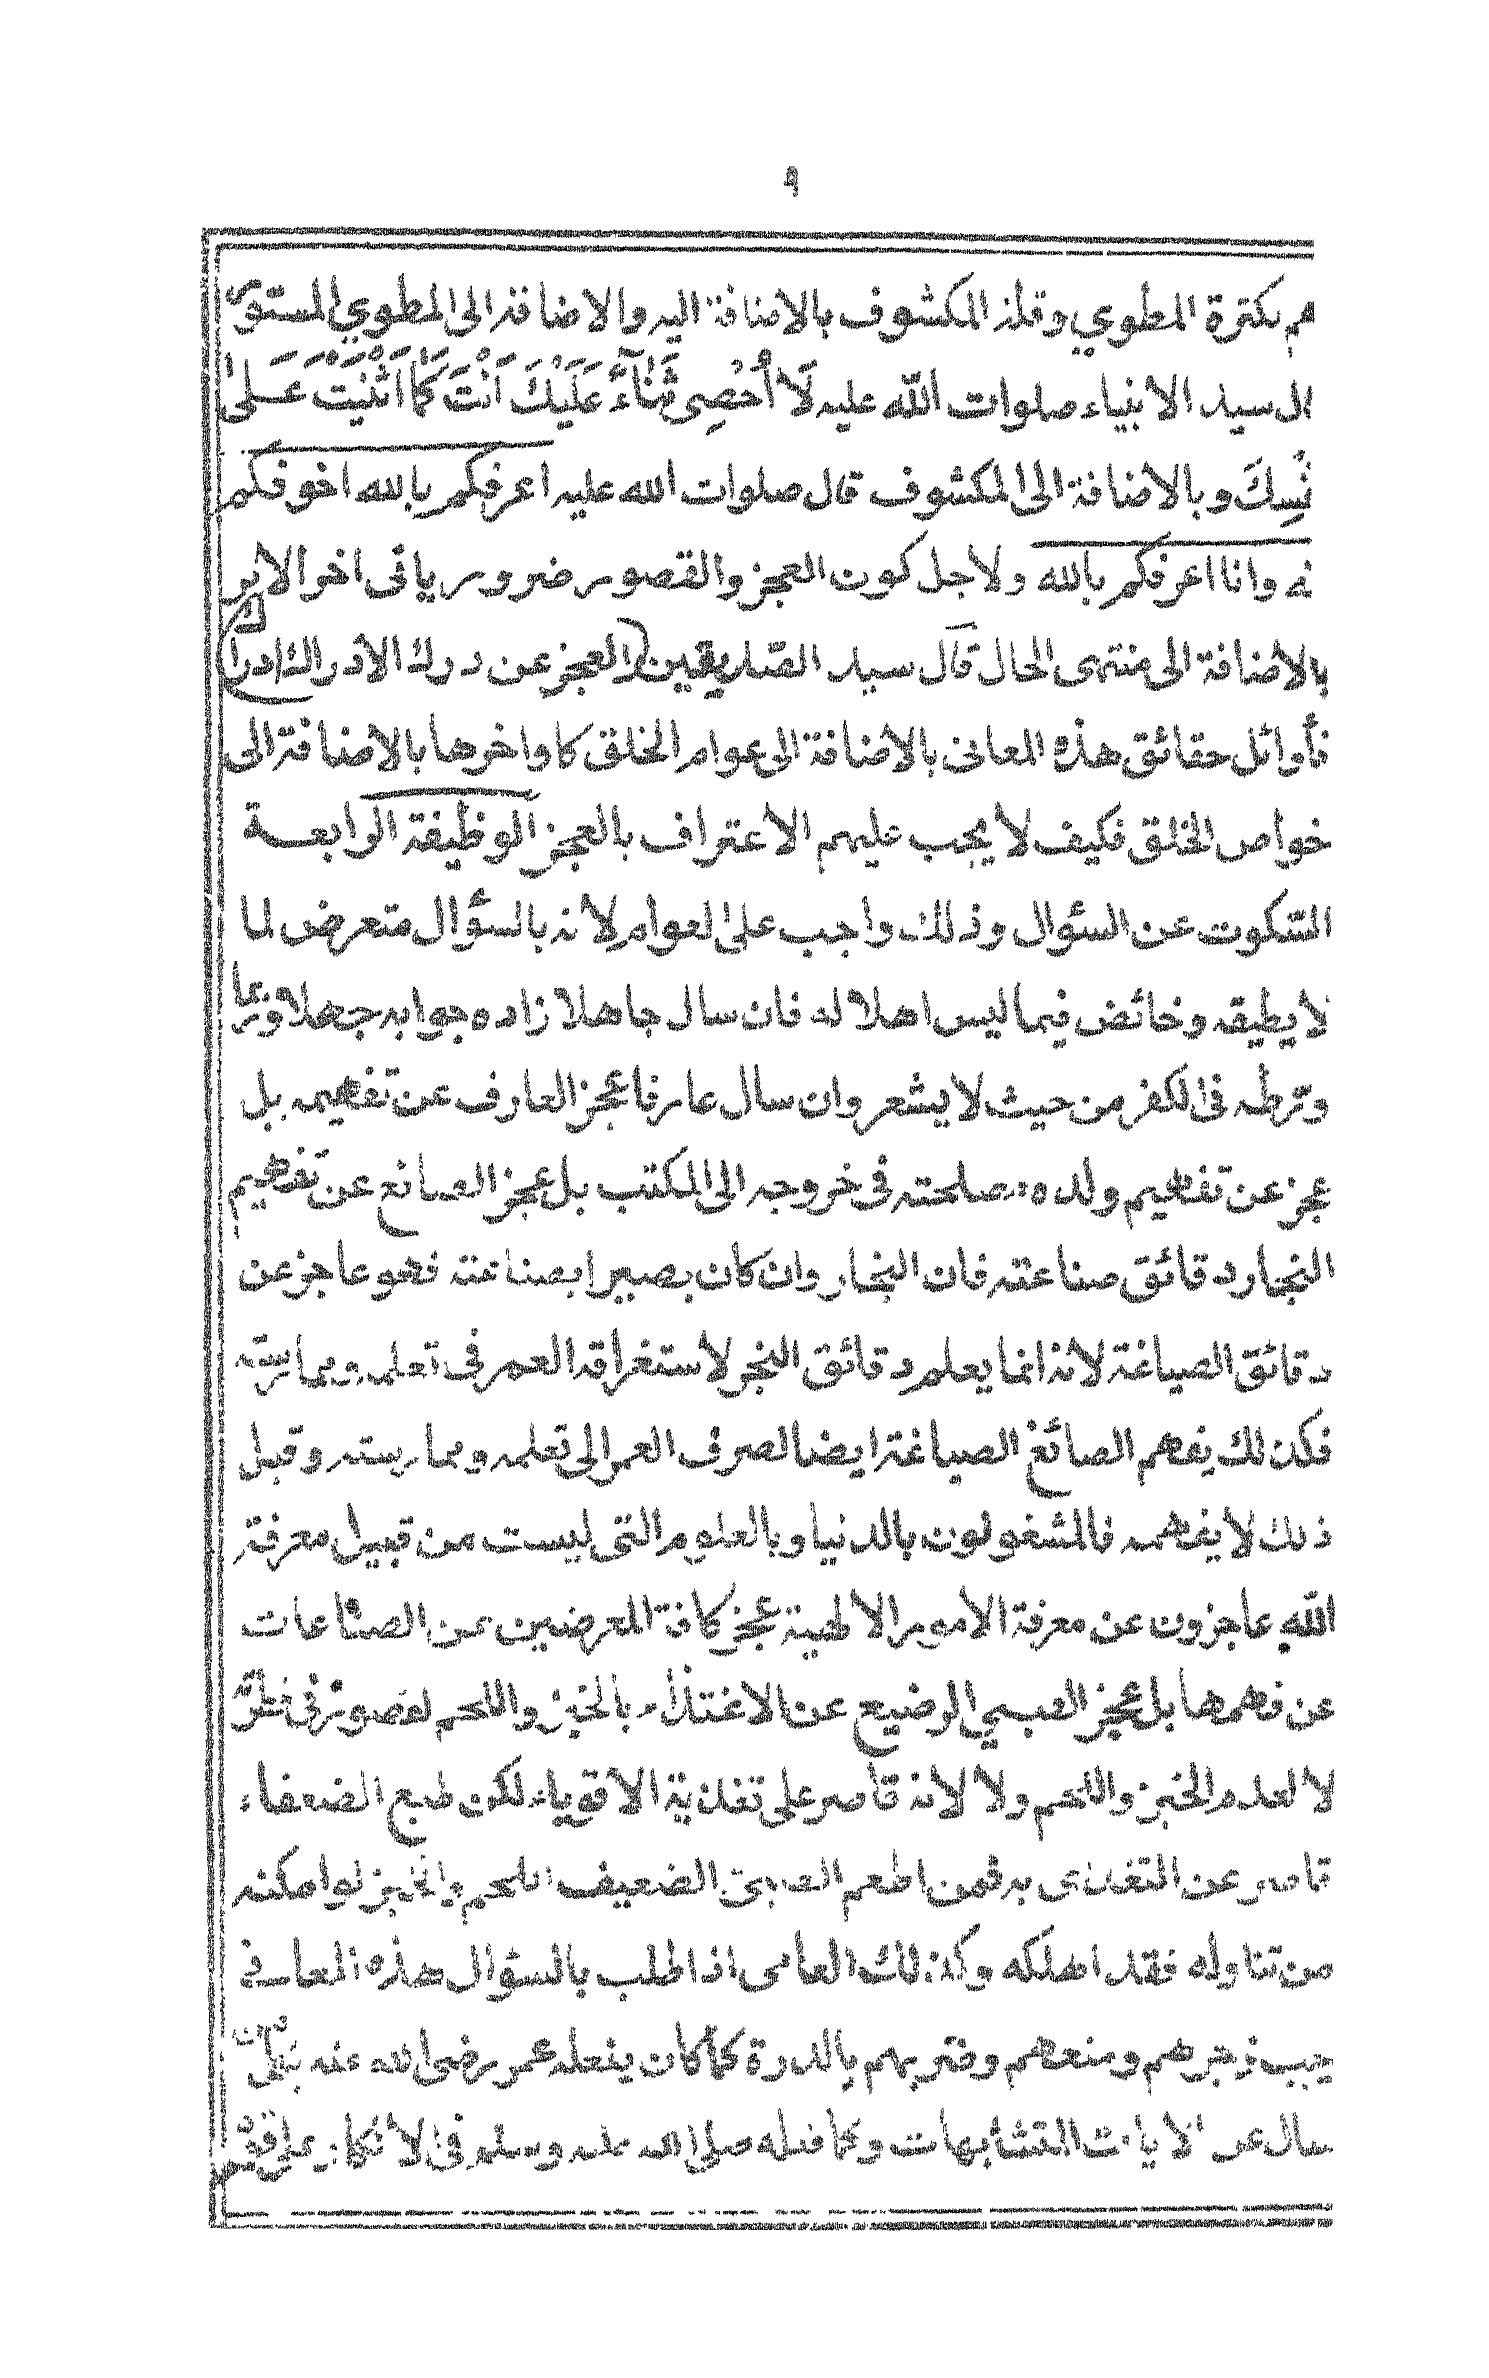 ٩
هم بكثرة المطوي وقلة المكشوف بالاضافة اليه والاضافة الى المطوي المستور
ال سيد الانبياء صلوات الله عليه لَا أُحْصِي ثَنَآءً عَلَيْكَ أَنْتَ كَمَا أَثْنَيْتَ عَلىٰ
نَفْسِكَ وبالاضافة الى المكشوف قال صلوات الله عليه اعرفكم بالله اخوفكم
نه وانا اعرفكم بالله ولاجل كون العجز والقصور ضروريا فى اخر الامر
بالاضافة الى منتهى الحال قال سيد الصديقين العجز عن درك الادراك ادراك
فأوائل حقائق هذه المعانى بالاضافة الى عوام الخلق كاواخرها بالاضافة الى
خواص الخلق فكيف لا يجب عليهم الاعتراف بالعجز الوظيفة الرابعة
السكوت عن السؤال وذلك واجب على العوام لانه بالسؤال متعرض لما
لا يطيقه وخائض فيما ليس اهلا له فان سال جاهلا زاده جوابه جهلا وربما
ورّطه فى الكفر من حيث لا يشعر وان سال عارفا عجز العارف عن تفهيمه بل
عجز عن تفهيم ولده مصلحته فى خروجه الى المكتب بل عجز الصائغ عن تفهيم
النجار دقائق صناعته فان النجار وان كان بصيرا بصناعته فهو عاجز عن
دقائق الصياغة لانه انما يعلم دقائق النجر لاستغراقه العمر فى تعلمه وممارسته
فكذلك يفهم الصائغ الصياغة ايضا لصرف العمر الى تعلمه وممارسته وقبل
ذلك لا يفهمه فالمشغولون بالدنيا وبالعلوم التى ليست من قبيل معرفة
الله عاجزون عن معرفة الامور الالهية عجز كافة المعرضين عن الصناعات
عن فهمها بل عجز الصبي الرضيع عن الاغتذاء بالخبز واللحم لقصور فى فطرته
لا لعدم الخبز واللحم ولا لانه قاصر على تغذية الاقوياء لكن طبع الضعفاء
قاصر عن التغذى به فمن اطعم الصبى الضعيف اللحم والخبز او امكنه
من تناوله فقد اهلكه وكذلك العامى اذا طلب بالسؤال هذه المعانى
يجب زجرهم ومنعهم وضربهم بالدرة كما كان يفعله عمر رضى الله عنه بكل من
سال عن الايات المتشابهات وكما فعله صلى الله عليه وسلم فى الانكار على قوم